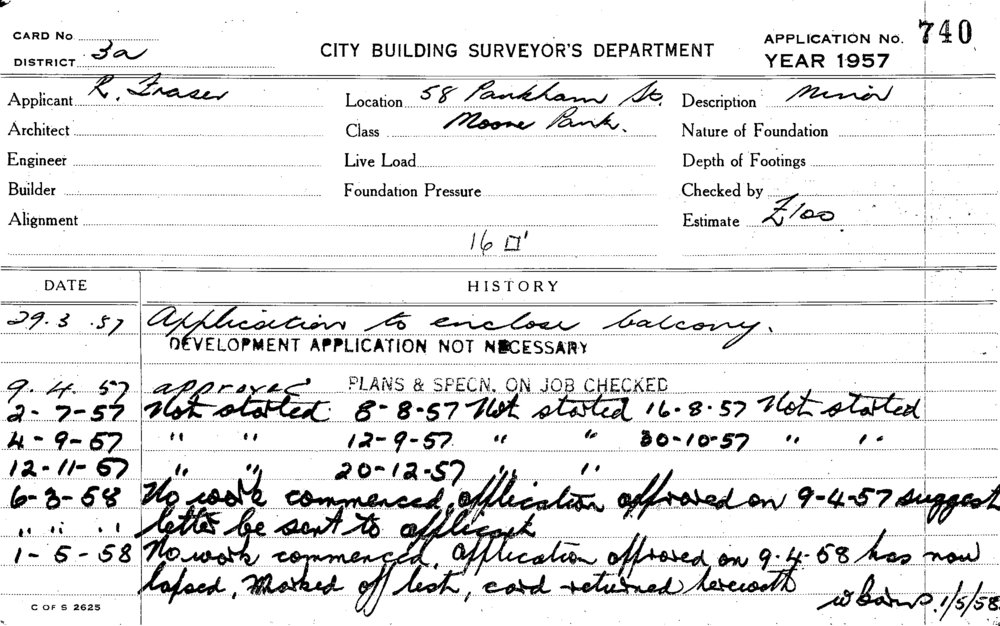 CARD No.
DISTRICT 3a
CITY BUILDING SURVEYOR'S DEPARTMENT
APPLICATION No. 740
YEAR 1957
Applicant R. Fraser
Location 58 Pankham St.
Description Minor
Architect
Class Moore Park.
Nature of Foundation
Engineer
Live Load
Depth of Footings
Builder
Foundation Pressure
Checked by
Alignment
Estimate £100
16 □'
DATE HISTORY
29.3.57 Application to enclose balcony.
DEVELOPMENT APPLICATION NOT NECESSARY
9.4.57 approved PLANS & SPECN. ON JOB CHECKED
2-7-57 Not started 8-8-57 Not started 16-8-57 Not started
4-9-57 " " 12-9-57 " " 30-10-57 " "
12-11-57 " " 20-12-57 " "
6-3-58 No work commenced, application approved on 9-4-57 suggest
" " " letter be sent to applicant
1-5-58 No work commenced. Application approved on 9.4.58 has now
lapsed, Marked off list, card returned herewith
1/5/58.
C OF S 2625